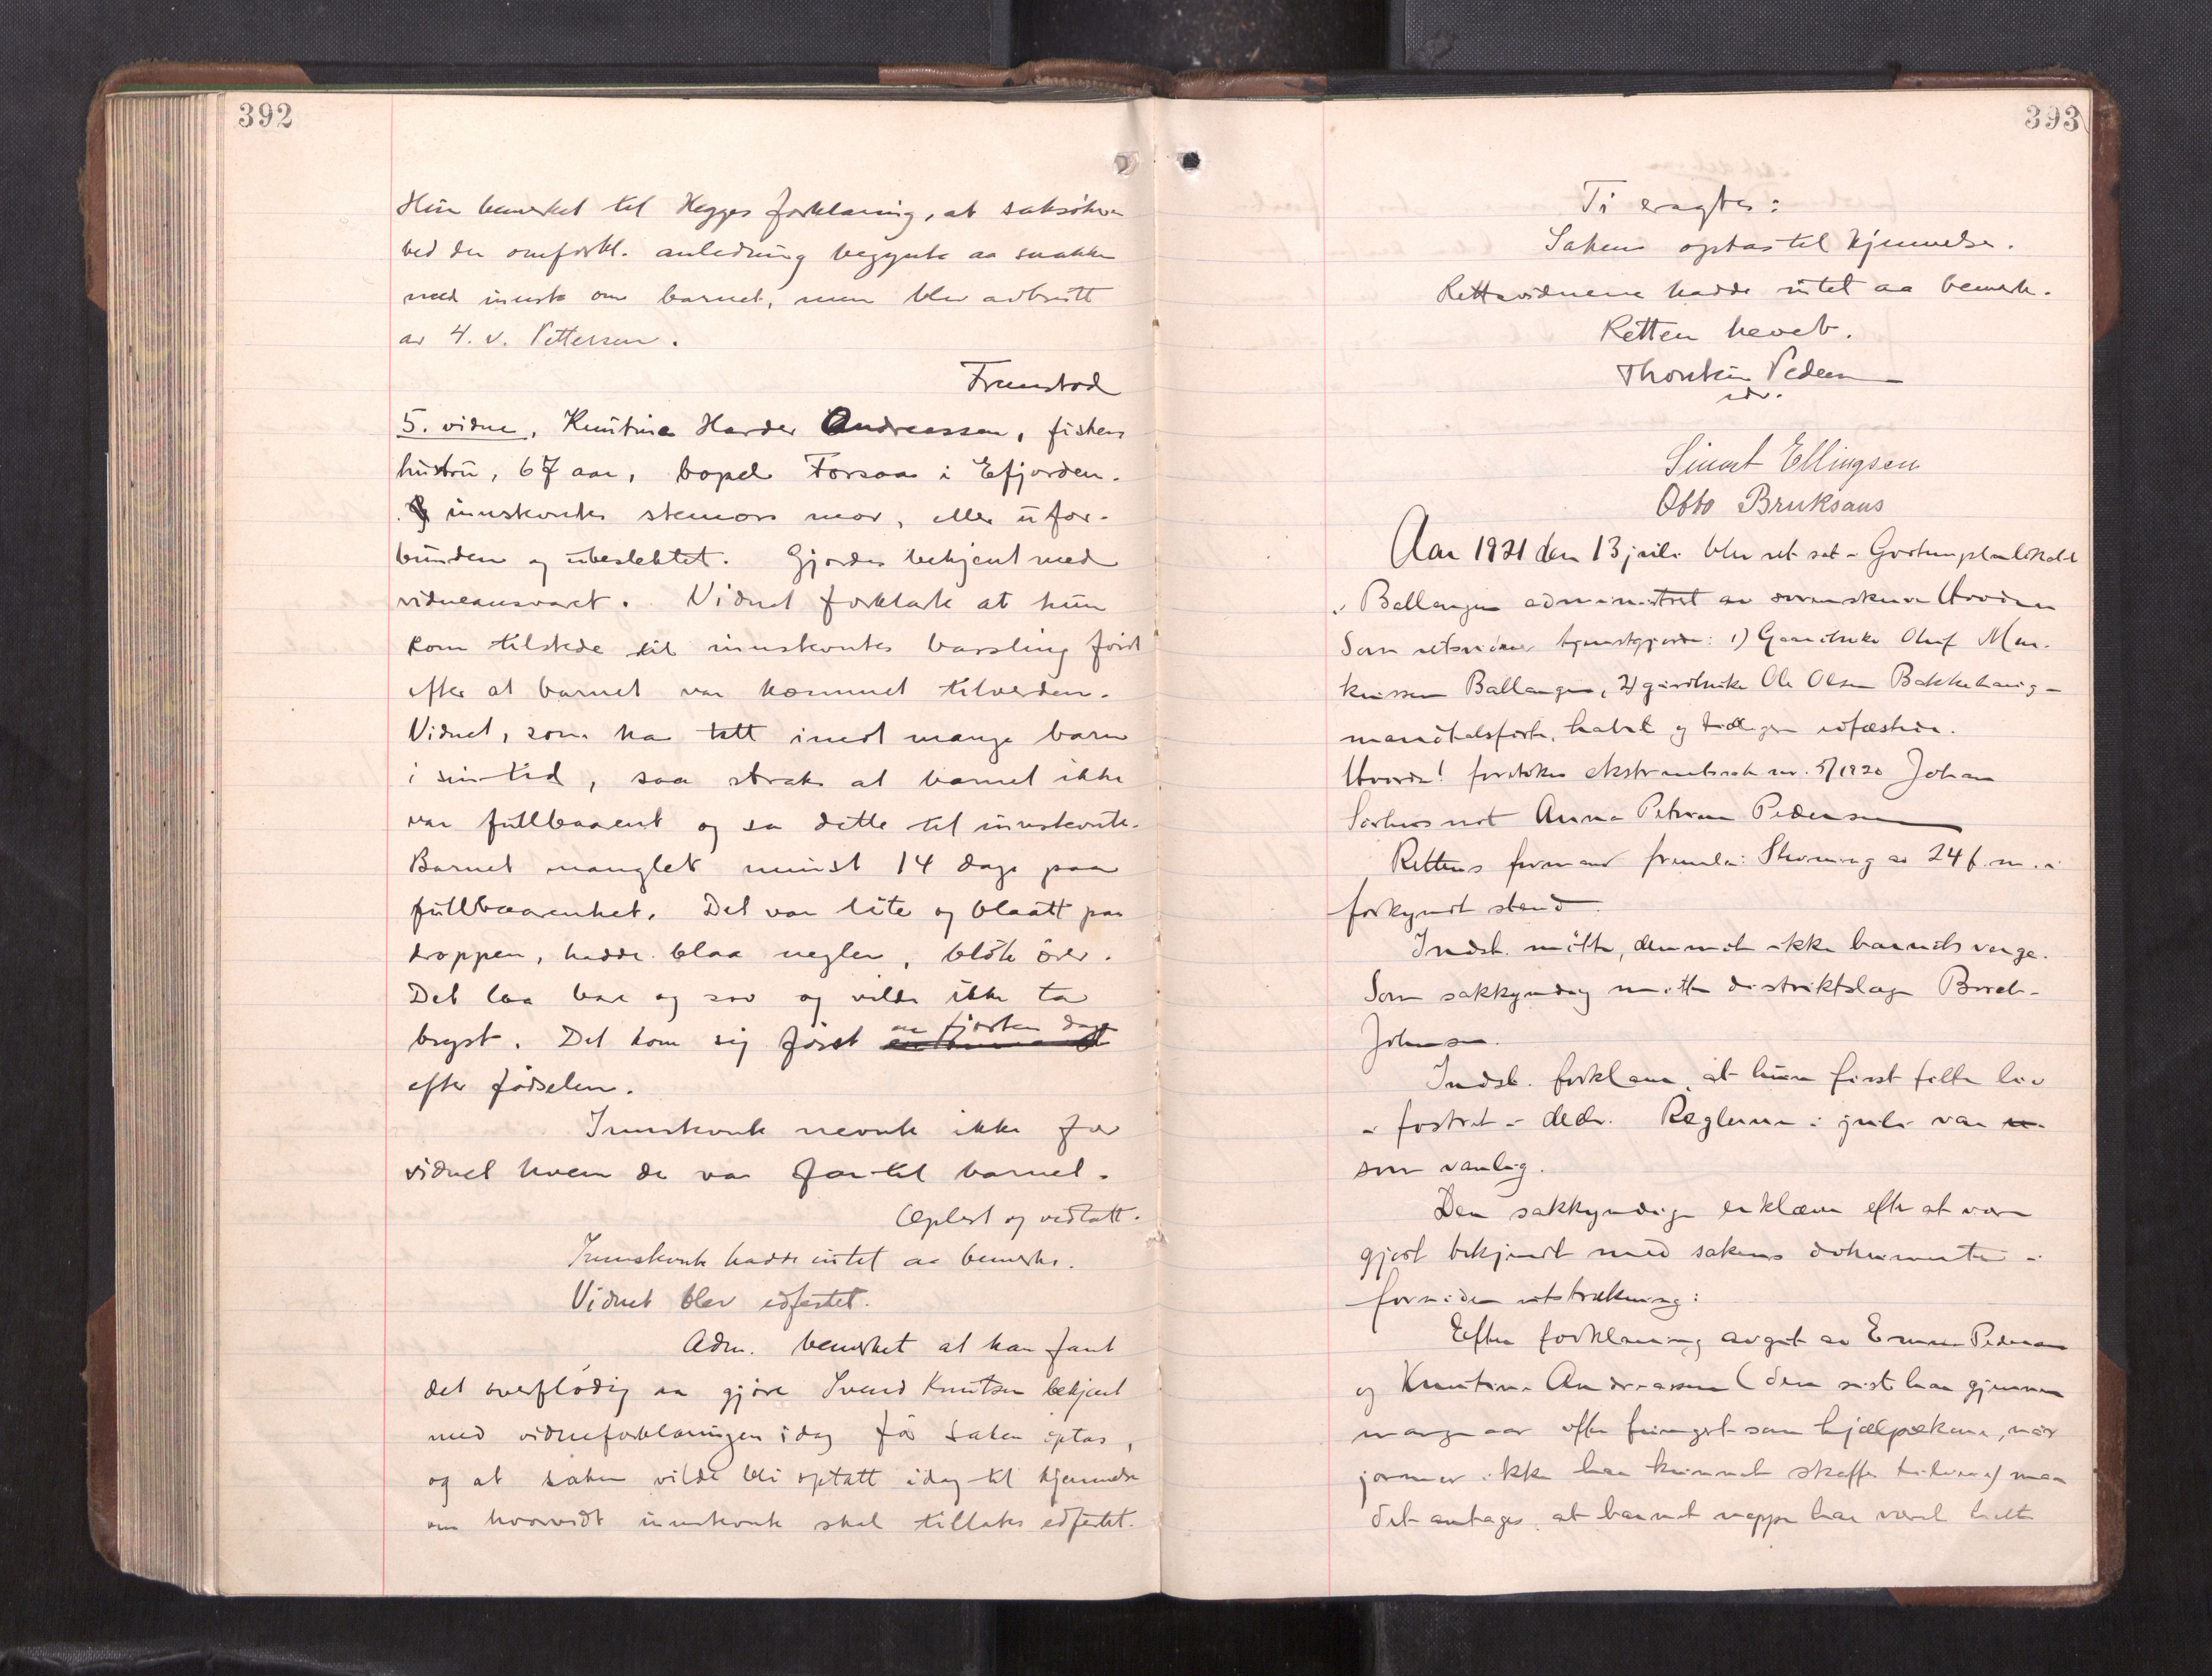 392
Hun bemerket til Hegges forklaring, at saksøkeren
ved den omforkl. anledning begynte aa snakke
med innst. om barnet, men blev avbrutt
av 4. v. Pettersen.
Fremstod
5. vidne, Knutina Harder Andreassen, fiskers
hustru, 67 aar, bopel Forsaa i Efjorden.
innstevntes stemors mor, ellers ufor-
bunden og ubeslektet. Gjordes bekjent med
vidneansvaret. Vidnet forklarte at hun
kom tilstede til innstevntes barsling først
efter at barnet var kommet til verden.
Vidnet, som har tatt imot mange barn
i sin tid, saa straks at barnet ikke
var fullbaarent og sa dette til innstevnte.
Barnet manglet minst 14 dage paa
fullbaarenhet. Det var lite og blaatt paa
kroppen, hadde blaa negler, bløte ører.
Det laa bare og sov og vilde ikke ta
bryst. Det kom sig først en fjorten dage
efter fødselen.
Innstevnte nevnte ikke for
vidnet hvem der var far til barnet.
Oplest og vedtatt.
Innstevnte hadde intet aa bemerke.
Vidnet blev edfestet.
Adm. bemerket at han fant
det overflødig aa gjøre Svend Knutsen bekjent
med vidneforklaringen idag før saken optas,
og at saken vilde bli optatt idag til kjennelse
om hvorvidt innstevnte skal tillates edfestet.
393
Ti eragtes:
Saken optas til kjennelse.
Rettsvidnene hadde intet aa bemerke.
Retten hevet.
Thorstein Pedersen
edv.
Sivert Ellingsen
Otto Bruksaas
Aar 1921 den 13 juli blev ret sat i Godtemplarlokalet
i Ballangen administrert av sorenskriver
Som retsvidner tjenestgjorde: 1) Gaardbruker Oluf Mar-
kussen Ballangen, 2) gaardbruker Ole Olsen Bakkehaug -
mandtalsført, habel og tidligere edfæstede.
Hvorda! foretokes ekstraretssak nr. 5/1920 Johan
mot Anna Petrine Pedersen
Rettens formand fremla: Stevning av 24 f. m. i
forkyndt stand.
Indst. møtte, derimot ikke barnets verge.
Som sakkyndig møtte distriktslæge Borch-
Johnsen.
Indst. forklarer, at hun først følte liv
i fostret i decbr. Reglerne i juli var
som vanlig.
Den sakkyndige erklærer efter at være
gjort bekjendt med sakens dokumenter i
fornøden utstrækning:
Efter forklaring avgit av Emma Pedersen
og Knutine Andreassen (den siste har gjennem
mange aar ofte fungert som hjælpekone, naar
jormor ikke har kunnet skaffes tilveie) maa
det antages, at barnet neppe har været helt